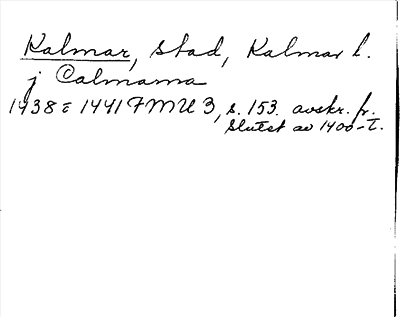 Kalmar, stad, Kalmar l.
j Calmarna
1438 1441 FMU 3, s. 153. avskr. fr.
slutet av 1400-t.